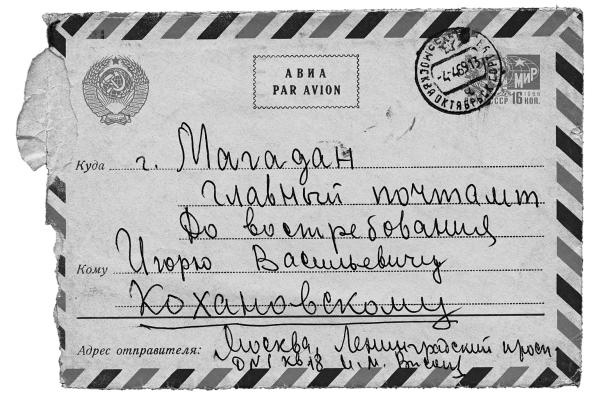 АВИА
PAR AVION
МОСКВА ОКТЯБРЬСК.
-4-469.13
МИР
СССР 1966
16 КОП.
Куда г. Магадан
главный почтамт
До востребования
Кому Игорю Васильевичу
Кохановскому
Адрес отправителя: Москва, Ленинградский просп
кв 18